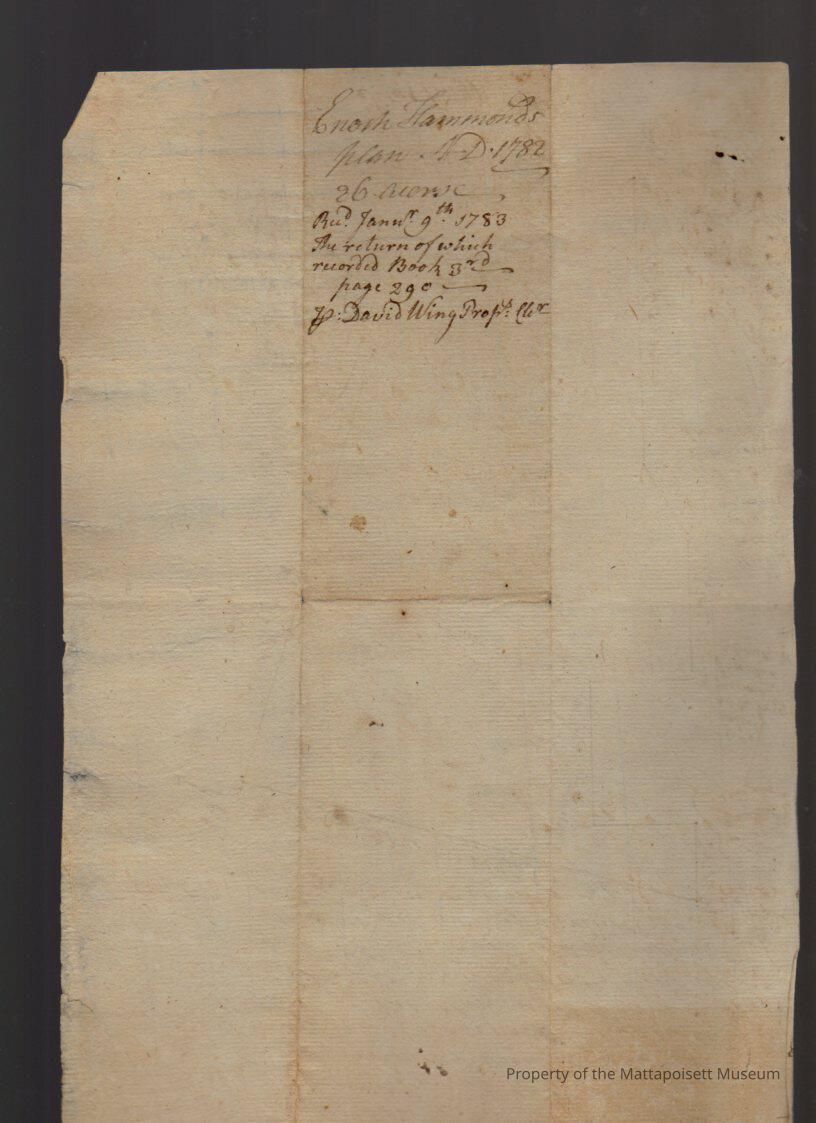 Enoch Hammonds
plan A D. 1782
26 acors
Recd. Janur. 9th. 1783
The return of which
recorded Book 3rd
page 290
Pr: David Wing Proprs. Cler
Property of the Mattapoisett Museum